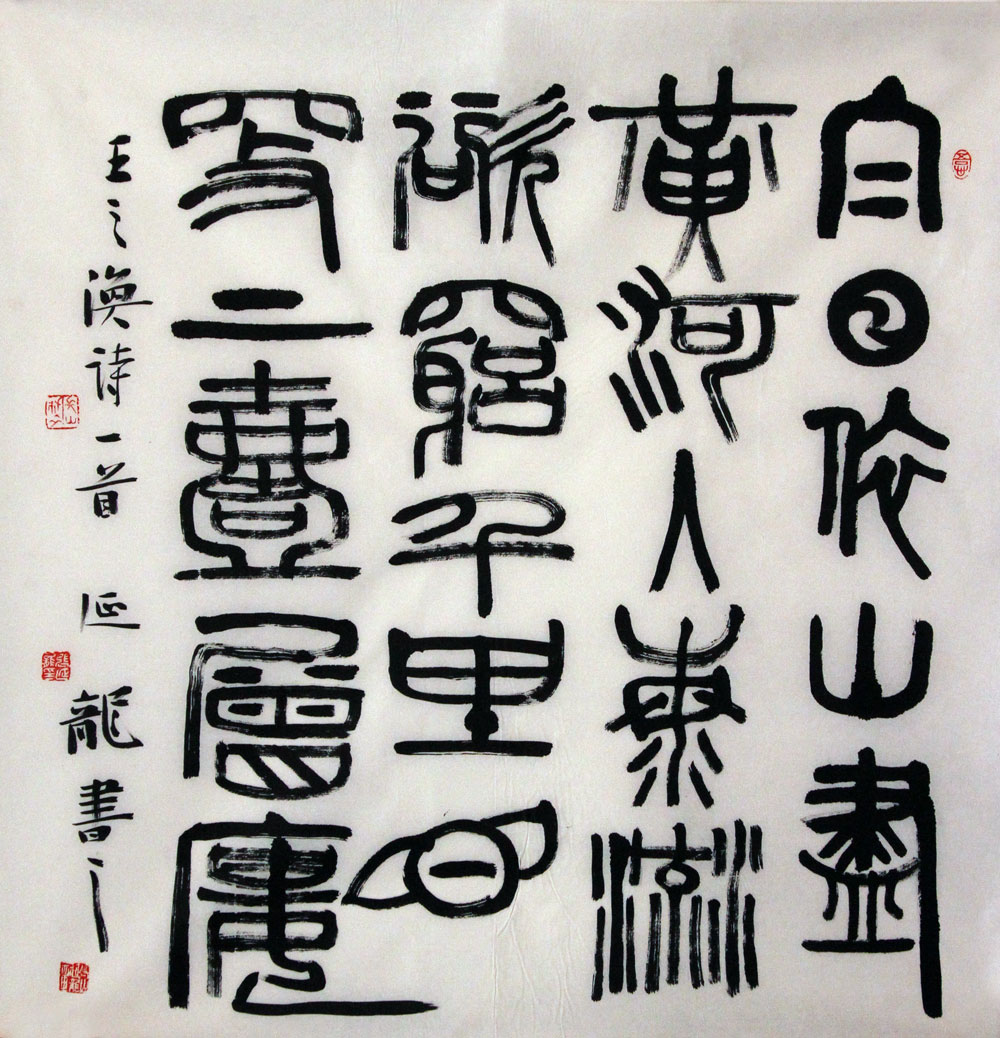 白日依山盡
黄河入海流
欲窮千里目
更上壹層樓
王之涣诗一首 延龍書之